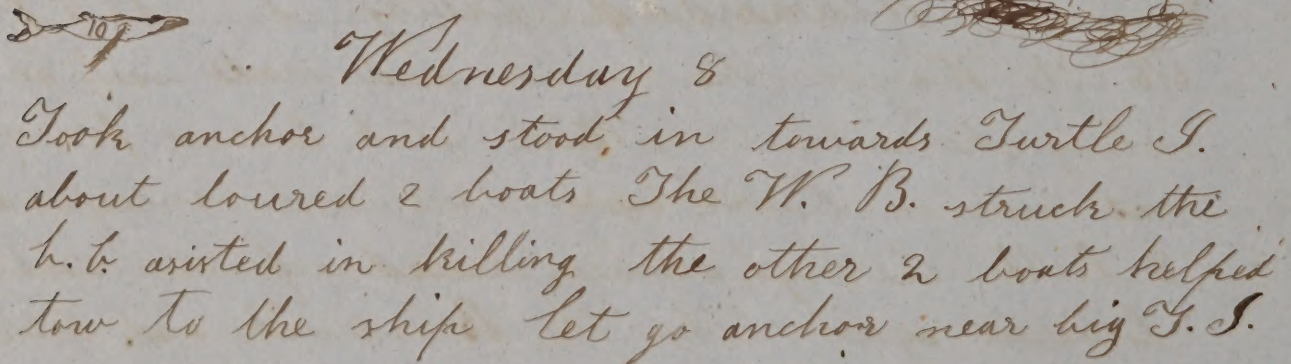 10
Wednesday 8
Took anchor and stood in towards Turtle I.
about loured 2 boats The W. B. struck the
b. b. asisted in killing the other 2 boats helped
tow to the ship let go anchor near big T. I.